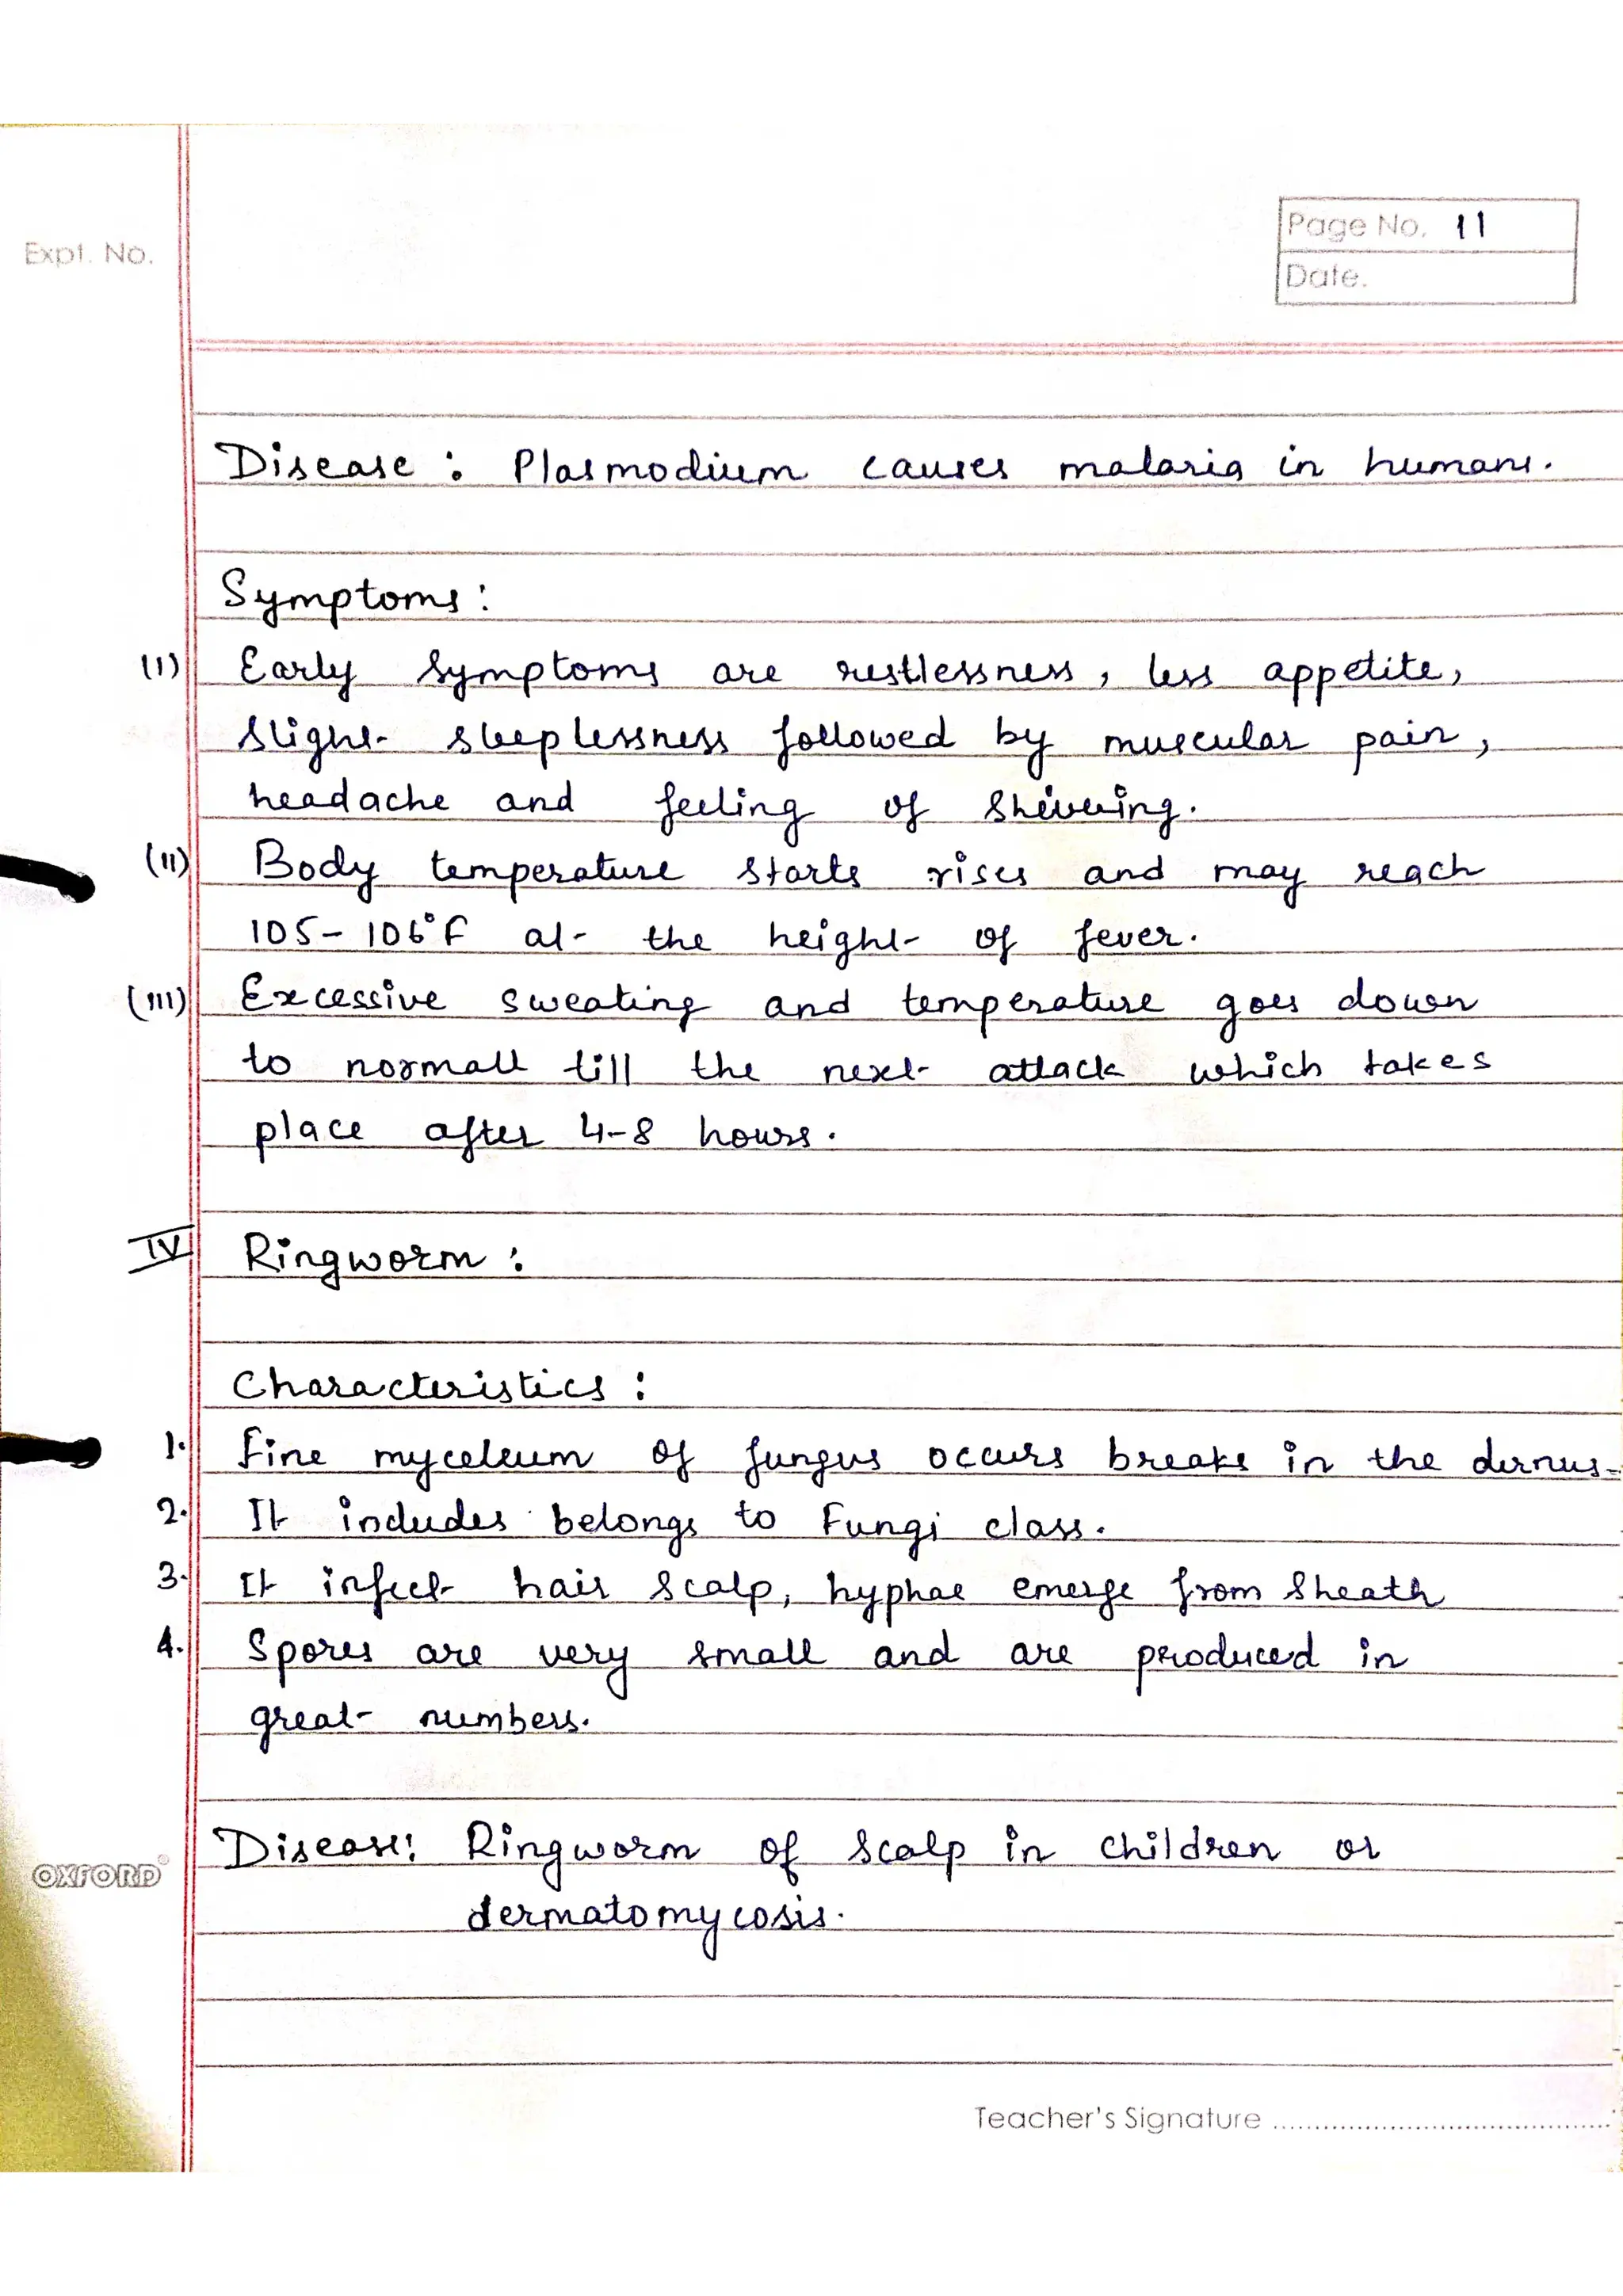 Expt. No.
Page No. 11
Date.
Disease : Plasmodium causes malaria in humans.
Symptoms :
(I) Early symptoms are restlessness, less appetite,
slight sleeplessness followed by muscular pain,
headache and feeling of shivering.
(II) Body temperature starts rises and may reach
105-106°F at the height of fever.
(III) Excessive sweating and temperature goes down
to normall till the next attack which takes
place after 4-8 hours.
IV Ringworm :
Characteristics :
1. Fine myceleum of fungus occurs breaks in the
2. It includes belongs to Fungi class.
3. It infect hair scalp, hyphae emerge from sheath
4. Spores are very small and are produced in
great numbers.
Disease: Ringworm of scalp in children or
dermatomycosis.
OXFORD®
Teacher's Signature